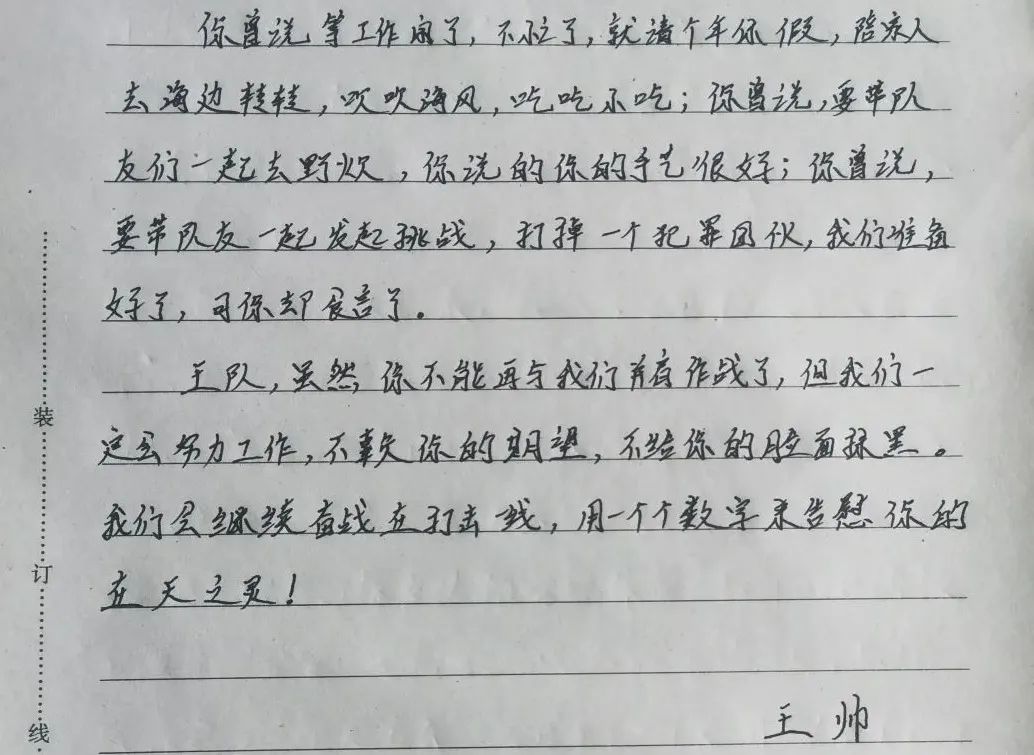 你曾说等工作闲了，不忙了，就请个年休假，陪家人
去海边转转，吹吹海风，吃吃小吃；你曾说，要带队
友们一起去野炊，你说的你的手艺很好；你曾说，
要带队友一起发起挑战，打掉一个犯罪团伙，我们准备
好了，可你却食言了。
王队，虽然你不能再与我们并肩作战了，但我们一
定会努力工作，不辜负你的期望，不给你的脸面抹黑。
我们会继续奋战在打击一线，用一个个数字来告慰你的
在天之灵！
王帅
装
订
线